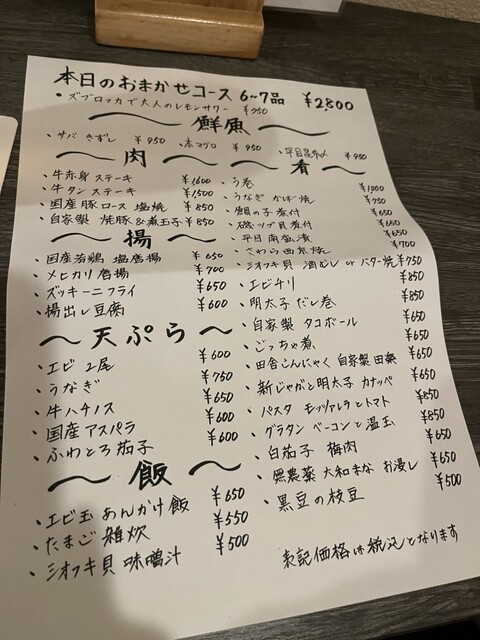 本日のおまかせコース 6~7品 ¥2,800
・ズブロッカで大人のレモンサワー ¥950
〜 鮮魚 〜
・サバ きずし ¥950 ・本マグロ ¥950 ・平目昆布〆 ¥950
〜 肉 〜
・牛赤身ステーキ ¥1600
・牛タンステーキ ¥1500
・国産豚ロース 塩焼 ¥850
・自家製 焼豚&煮玉子 ¥850
〜 揚 〜
・国産若鶏 塩唐揚 ¥650
・メヒカリ唐揚 ¥700
・ズッキーニフライ ¥650
・揚出し豆腐 ¥600
〜 天ぷら 〜
・エビ 2尾 ¥600
・うなぎ ¥750
・牛ハチノス ¥650
・国産アスパラ ¥600
・ふわとろ茄子 ¥600
〜 飯 〜
・エビ玉あんかけ飯 ¥650
・たまご雑炊 ¥550
・シオフキ貝 味噌汁 ¥500
〜 肴 〜
・う巻 ¥1000
・うなぎ かば焼 ¥950
・鯛の子煮付 ¥650
・磯ツブ貝煮付 ¥650
・平目南蛮漬 ¥650
・さわら西京焼 ¥700
・シオフキ貝 酒むし or バター焼 ¥750
・エビチリ ¥850
・明太子だし巻 ¥850
・自家製 タコボール ¥650
・ごっちゃ煮 ¥650
・田舎こんにゃく 自家製田楽 ¥650
・新じゃがと明太子 カナッペ ¥650
・パスタ モッツァレラとトマト ¥850
・グラタン ベーコンと温玉 ¥850
・白茄子 梅肉 ¥650
・無農薬 大和まな お浸し ¥650
・黒豆の枝豆 ¥500
表記価格は税込となります